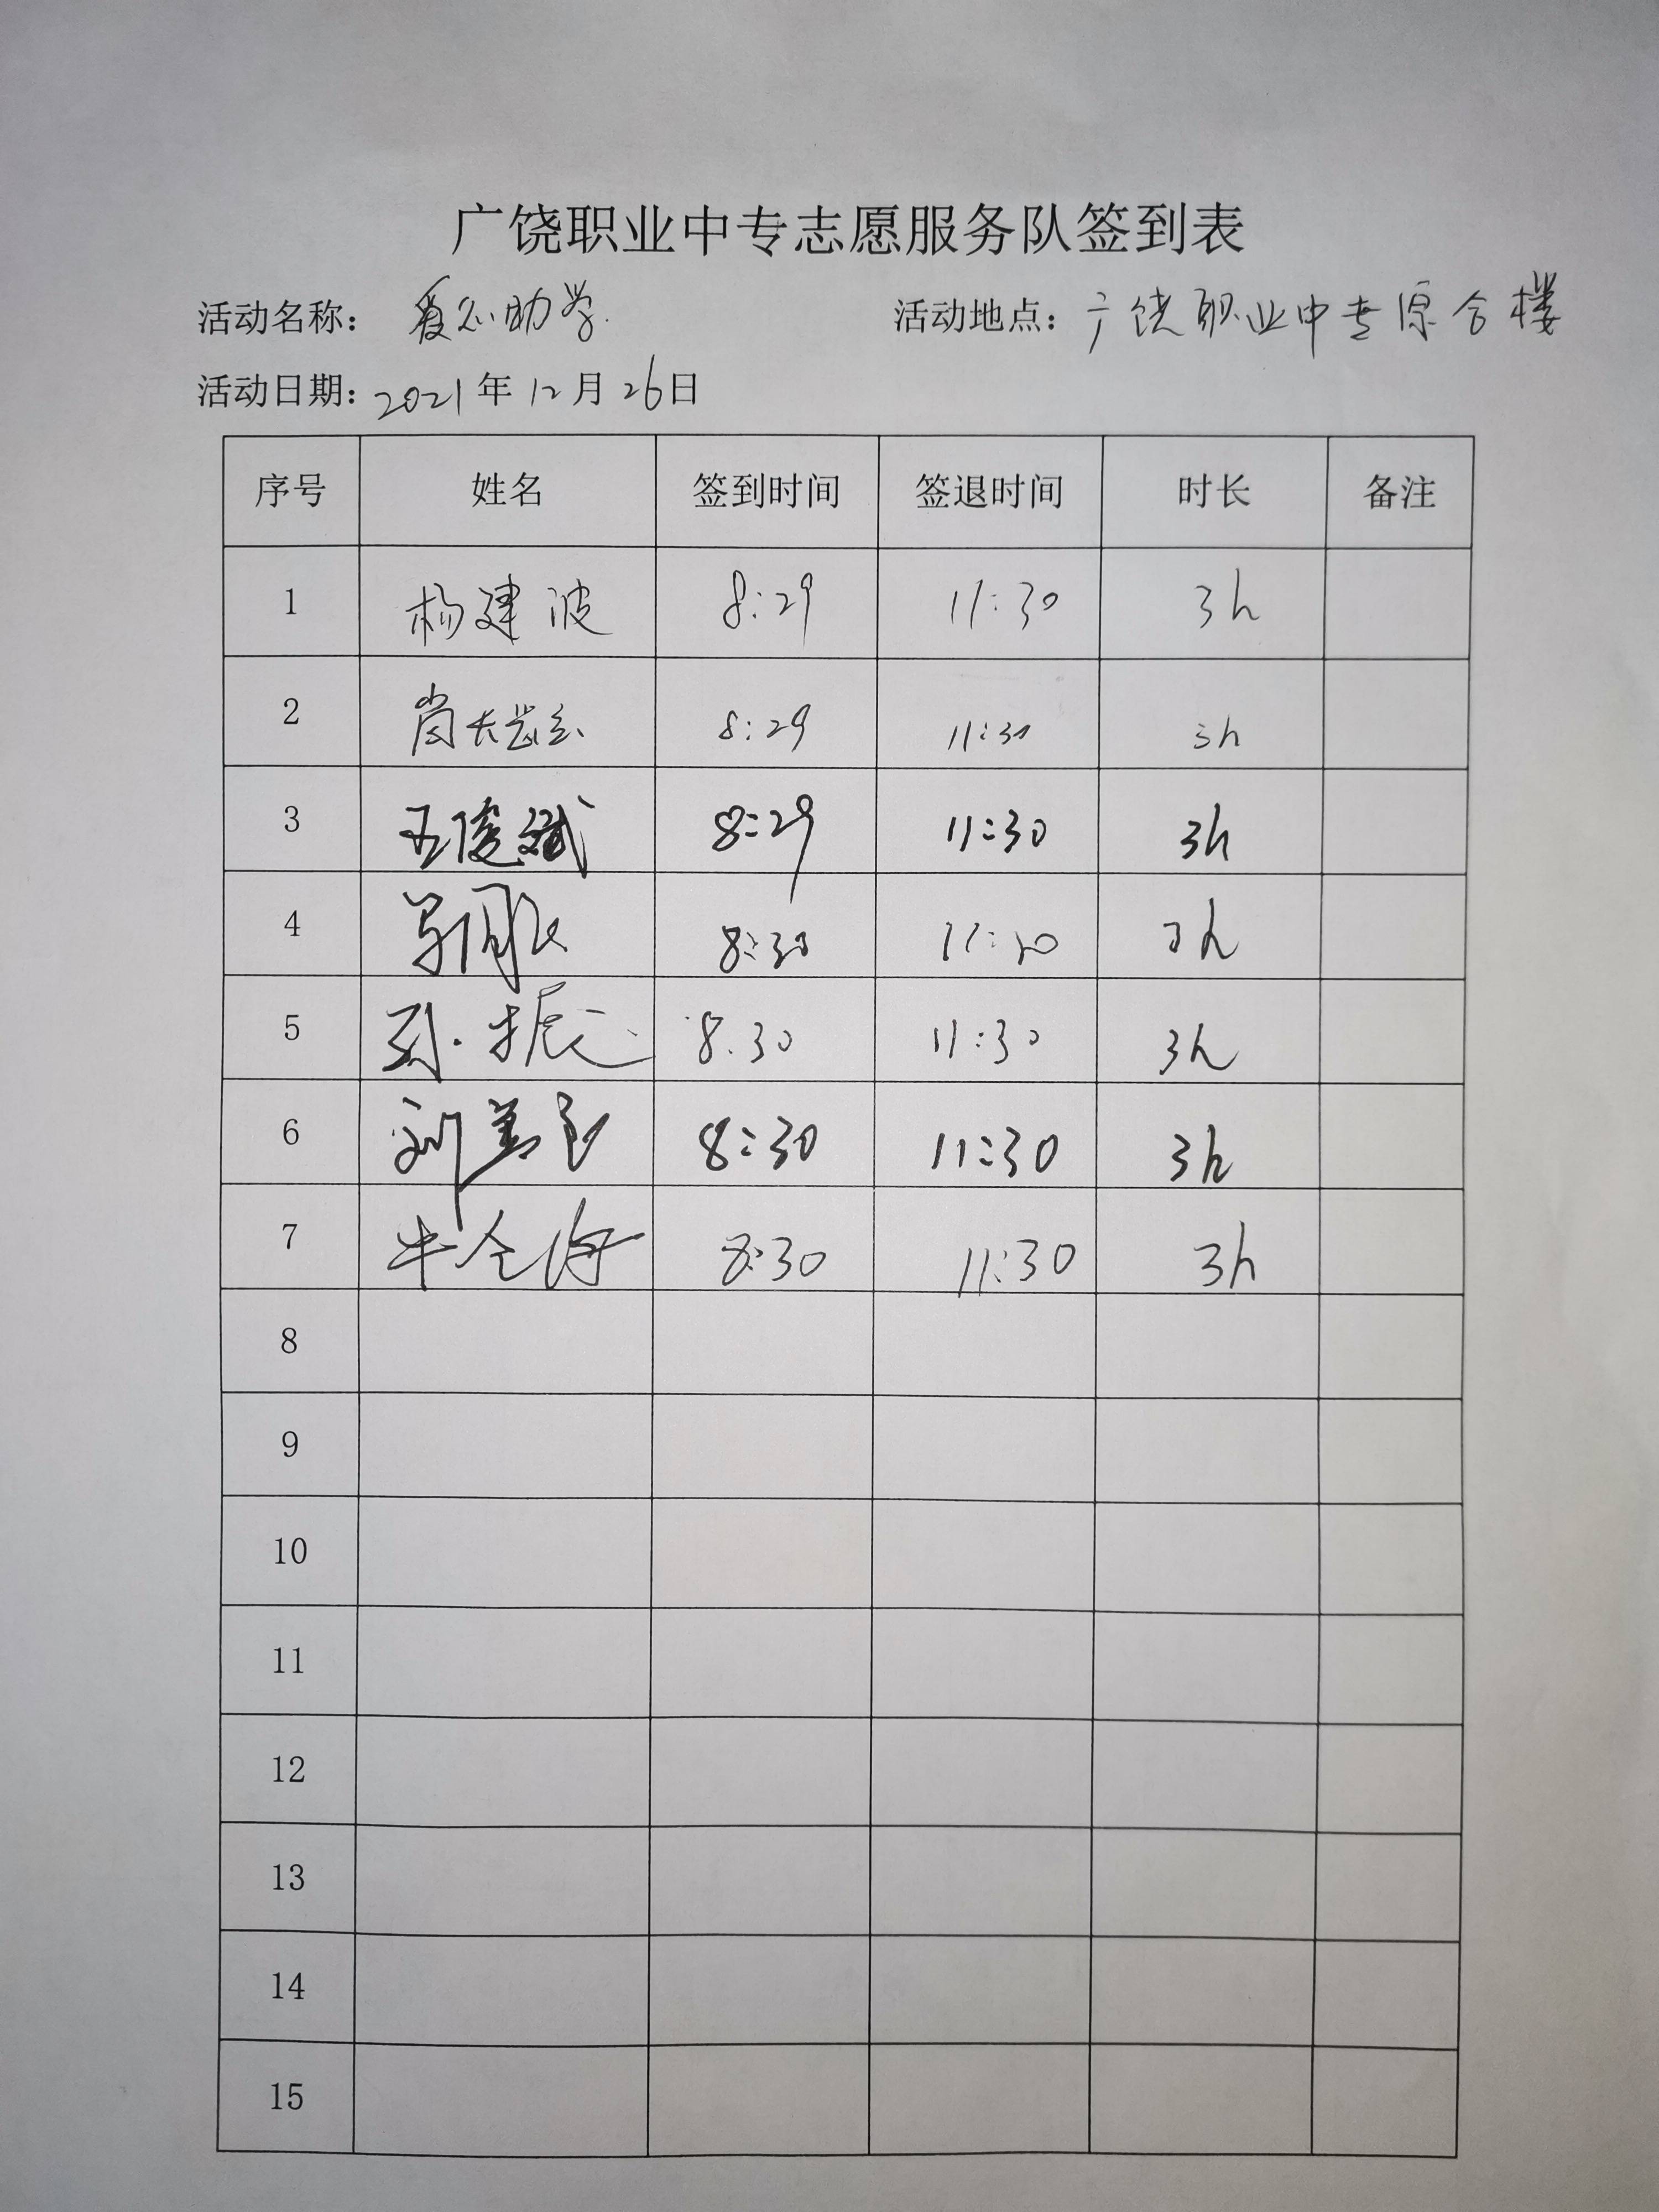 广饶职业中专志愿服务队签到表
活动名称：爱心助学 活动地点：广饶职业中专原合楼
活动日期：2021年12月26日
序号 姓名 签到时间 签退时间 时长 备注
1 杨建波 8:29 11:30 3h
2 尚 8:29 11:30 3h
3 王俊斌 8:29 11:30 3h
4 8:30 11:30 3h
5 孙振 8.30 11:30 3h
6 刘 8:30 11:30 3h
7 牛全海 8:30 11:30 3h
8
9
10
11
12
13
14
15